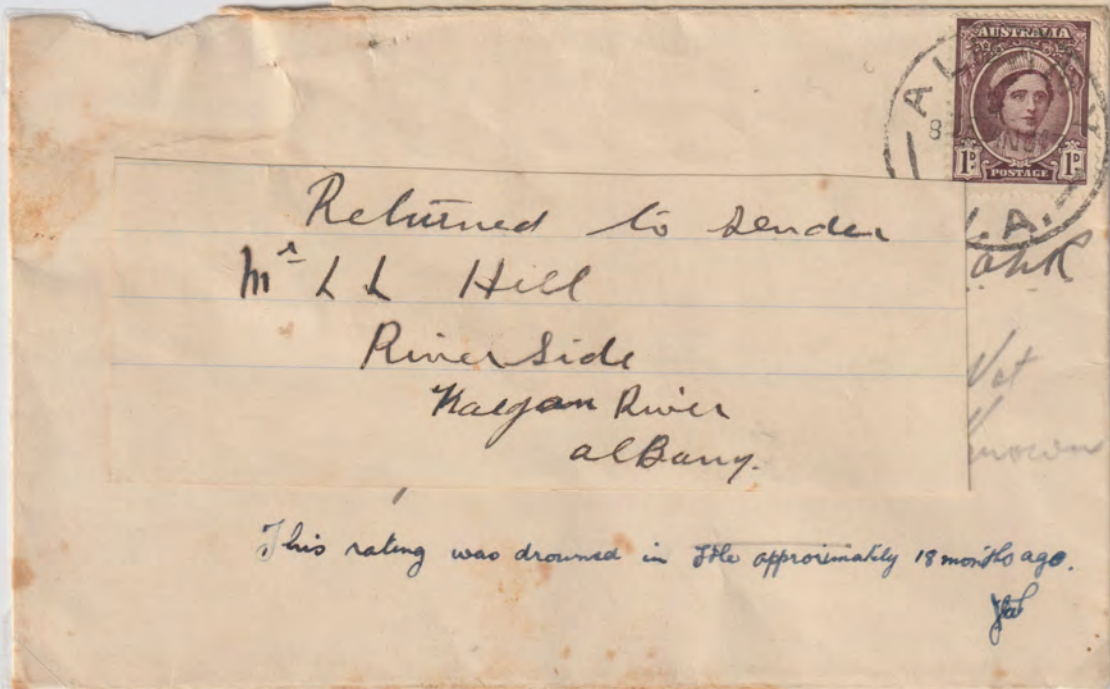 AUSTRALIA
1D POSTAGE 1D
W.A.
Returned to Sender
Mr L L Hill
River Side
Kalgan River
alBany.
Not
Known
This rating was drowned in approximately 18 months ago.